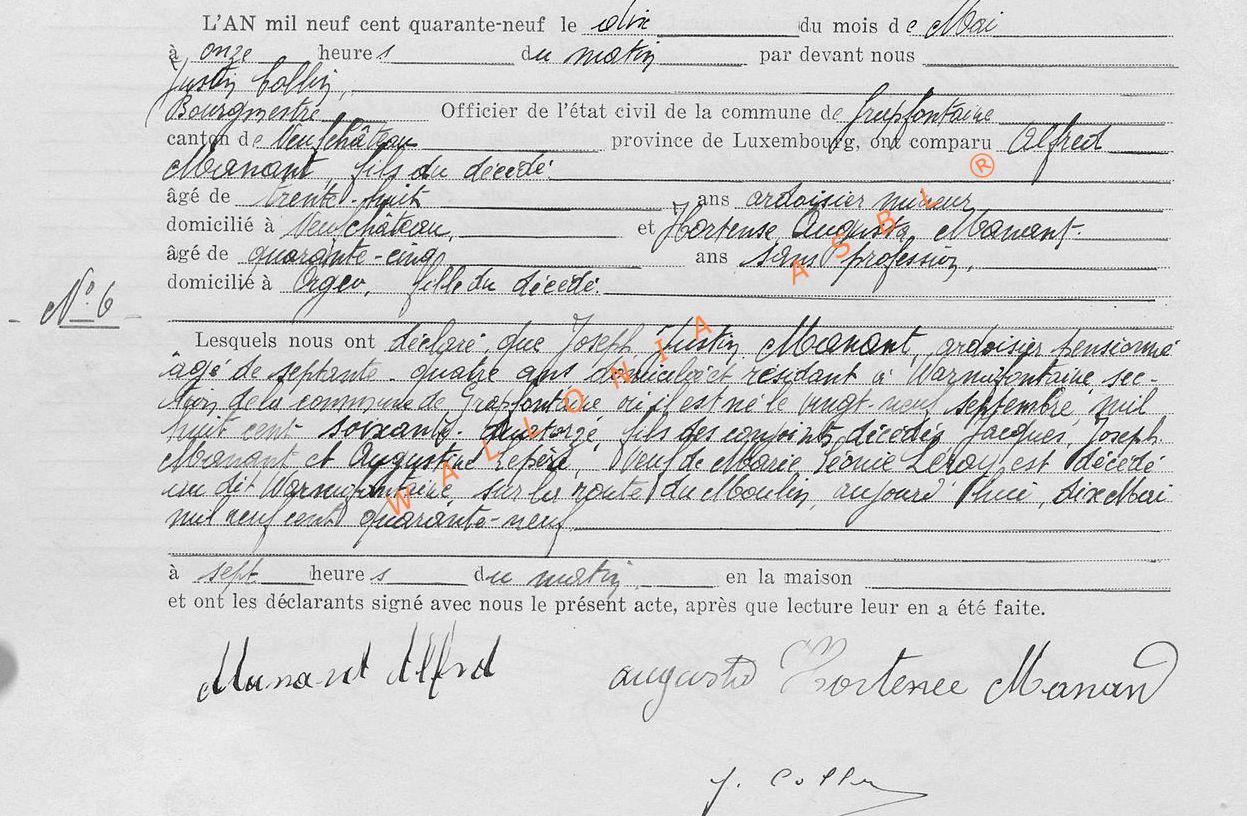 L'AN mil neuf cent quarante-neuf le dix du mois de Mai
à onze heures du matin par devant nous
Justin Collin,
Bourgmestre Officier de l'état civil de la commune de Grapfontaine
canton de Neufchâteau province de Luxembourg, ont comparu Alfred
Manant, fils du décédé.
âgé de trente-huit ans ardoisier mineur
domicilié à Neufchâteau. et Hortense Augusta Manant.
âgé de quarante-cinq ans sans profession,
domicilié à Orgeo, fille du décédé.
N° 6
Lesquels nous ont déclaré que Joseph Justin Manant, ardoisier pensionné
âgé de septante-quatre ans domicilié et résidant à Warmifontaine sec-
tion de la commune de Grapfontaine où il est né le vingt-neuf septembre mil
huit cent soixante-quatorze fils des conjoints décédés Jacques, Joseph
Manant et Augustine, Veuf de Marie Léonie Leroy, est décédé
au dit Warmifontaine, sur la route du Moulin, aujourd'hui, dix Mai
mil neuf cent quarante-neuf
à sept heures du matin. en la maison
et ont les déclarants signé avec nous le présent acte, après que lecture leur en a été faite.
Manant Alfred Augusta Hortense Manand
J. Collin
WALLONIA ASBL ®